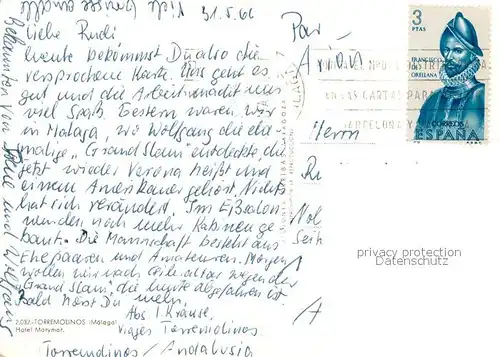 31.5.66
Liebe Rudi
heute bekommst Du also die
versprochene Karte. Uns geht es
gut und die Arbeit macht uns
viel Spaß. Gestern waren wir
in Malaga, wo Wolfgang die ehe
malige "Grand Slam" entdeckte, die
jetzt wieder Verona heißt und
einem Amerikaner gehört. Nichts
hat sich verändert. Im Eßsalon
wurden noch mehr Kabinen ge
baut. Die Mannschaft besteht aus
Ehepaaren und Amateuren. Morgen
wollen wir nach Gibraltar wegen der
"Grand Slam", die heute abgefahren ist.
Bald hörst Du mehr.
Abs I. Krause
Viajes Torremolinos.
Torremolinos/Andalusia
2.032.-TORREMOLINOS (Málaga)
Hotel Marymat.
Bekannten von
und Wolfgang
Viele Grüsse
Par
Avion
Herrn
3
PTAS
FRANCISCO
DE
ORELLANA
CORREOS
ESPAÑA
CARTAS PARA
BARCELONA Y
privacy protection
Datenschutz